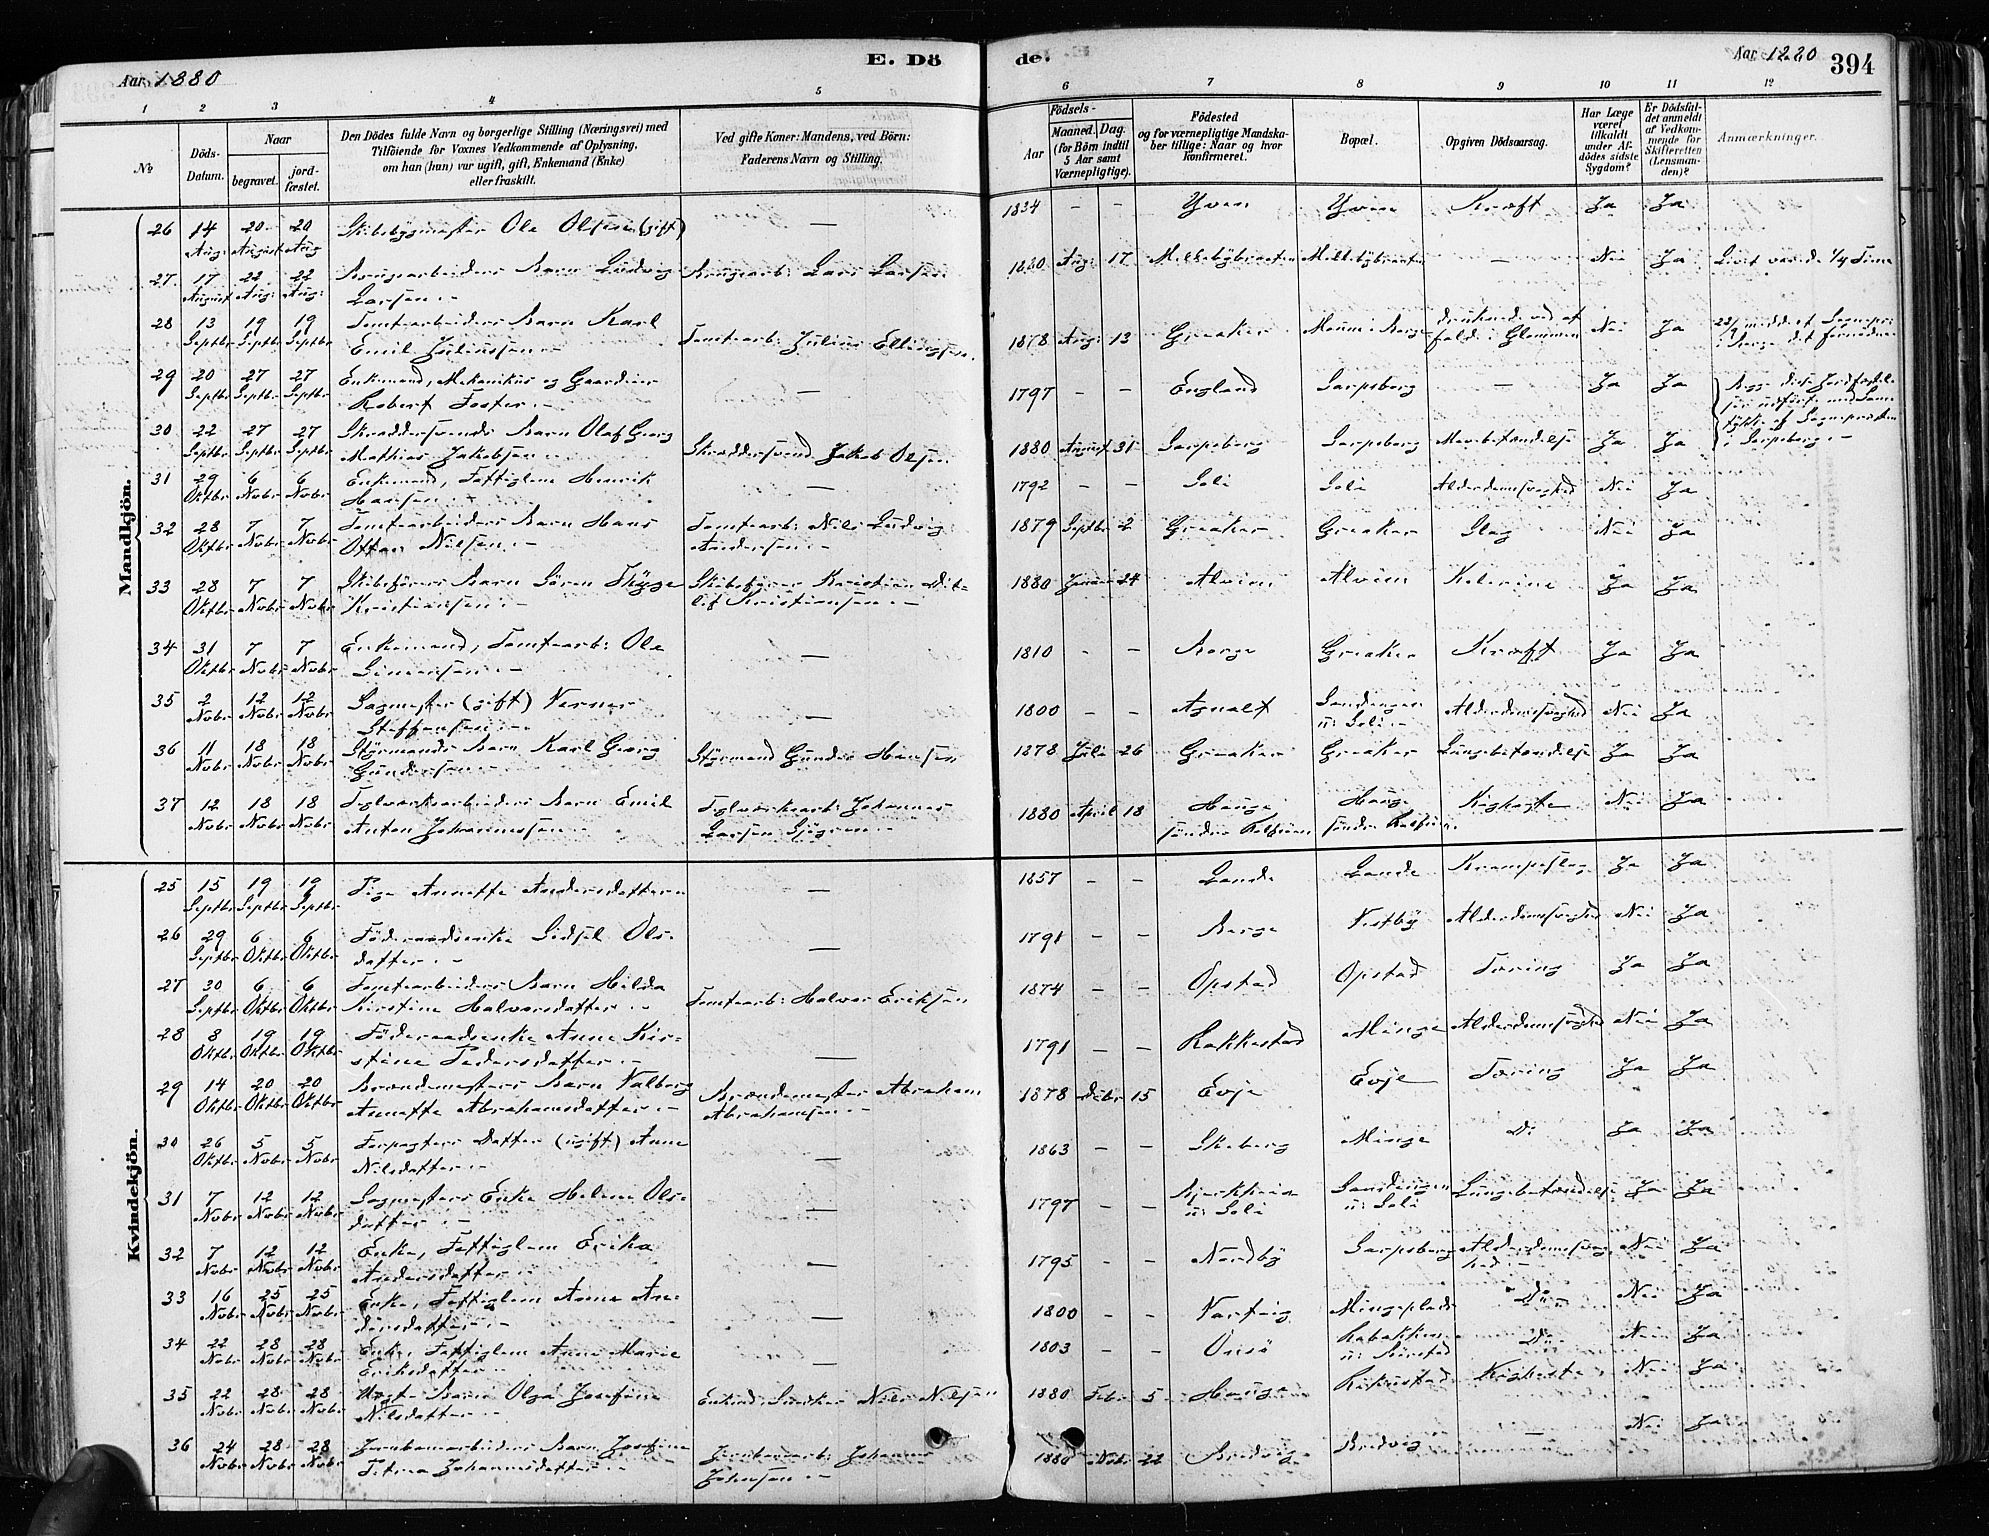 Aar 1880
E. Dö
de.
Aar 1880
394
1 2 3 4 5 6 7 8 9 10 11 12
№
Döds-Datum.
Naar
begravet.
jordfæstet.
Den Dödes fulde Navn og borgerlige Stilling (Næringsvei) med
Tilföiende for Voxnes Vedkommende af Oplysning,
om han (hun) var ugift, gift, Enkemand (Enke)
eller fraskilt.
Ved gifte Koner: Mandens, ved Börn:
Faderens Navn og Stilling.
Födsels-
Aar
Maaned. Dag.
(for Börn indtil
5 Aar samt
Værnepligtige).
Födested
og for værnepligtige Mandska-
ber tillige: Naar og hvor
konfirmeret.
Bopæl.
Opgiven Dödsaarsag.
Har Læge
været
tilkaldt
under Af-
dödes sidste
Sygdom?
Er Dödsfal-
det anmeldt
af Vedkom-
mende för
Skifteretten
(Lensman-
den)?
Anmærkninger.
Mandkjön.
26 14 Aug 20 August 20 Aug Skibsbygmester Ole Olsen (gift) — 1834 - - Yven Yven Kræft Ja Ja
27. 17 August 22 Aug: 22 Aug: Barn Ludvig Larsen.- Lars Larsen 1880 Aug: 17 — Nei Ja Livet varede 1/4 Time
28 13 Septbr 19 Septbr 19 Septbr Tomtearbeiders Barn Karl Emil Juliussen.- Tomtearb: Julius Ellingsen. 1878 Aug: 13 Greaker Moum i Borge Nei Ja
29 20 Septbr 27 Septbr 27 Septbr Enkemand, Mekanikus og Gaardeier Robert Foster.- — 1797 - - England Sarpsborg — Ja Ja
30 22 Septbr 27 Septbr 27 Septbr Skræddersvends Barn Olaf Georg Mathias Jakobsen.- Skræddersvend Jakob Olsen 1880 August 31 Sarpsborg Sarpsborg Ja Ja i Sarpsborg.-
31 29 Oktbr 6 Nvbr 6 Nvbr Enkemand, Fattiglem Henrik Hansen.- — 1792 - - Soli Soli Alderdomssvaghed Nei Ja
32 28 Oktbr 7 Nvbr 7 Nvbr Tomtearbeiders Barn Hans Otto Nilsen.- Tomtearb: Nils Ludvig Andersen.- 1879 Septbr 2 Greaker Greaker Slag Nei Ja
33 28 Oktbr 7 Nvbr 7 Nvbr Skibsförers Barn Sören Thyge Kristiansen.- Skibsförer Kristian Ditlef Kristiansen.- 1880 Januar 24 Alvim Alvim Kolerine Ja Ja
34 31 Oktbr 7 Nvbr 7 Nvbr Enkemand, Tomtearb: Ole Simensen.- — 1810 - - Borge Greaker Kræft Ja Ja
35 2 Nvbr 12 Nvbr 12 Nvbr Sagmester (gift) Verner Steffensen.- — 1800 - - Agnalt Sandengen u: Soli.- Alderdomssvaghed Nei Ja
36 11 Nvbr 18 Nvbr 18 Nvbr Styrmands Barn Karl Georg Gundersen.- Styrmand Gunder Hansen 1878 Juli 26 Greaker Greaker Lungebetændelse Ja Ja
37 12 Nvbr 18 Nvbr 18 Nvbr Teglværksarbeiders Barn Emil Anton Johannessen Teglværksarb: Johannes Larsen Sjögren.- 1880 April 18 Hauge söndre Hauge söndre Kighoste Nei Ja
Kvindekjön.
25 15 Septbr 19 Septbr 19 Septbr Pige Annette Andersdatter — 1857 - - Lande Lande Krampeslag Ja Ja
26 29 Septbr 6 Oktbr 6 Oktbr Föderaadsenke Sidsel Olsdatter.- — 1791 - - Borge Vestby Alderdomssvaghed Nei Ja
27 30 Septbr 6 Oktbr 6 Oktbr Tomtearbeiders Barn Hilda Kirstine Halvorsdatter.- Tomtearb: Halvor Eriksen 1874 - - Opstad Opstad Tæring Ja Ja
28 8 Oktbr 19 Oktbr 19 Oktbr Föderaadsenke Anne Kirstine Pedersdatter.- — 1791 - - Rakkestad Minge Alderdomssvaghed Nei Ja
29 14 Oktbr 20 Oktbr 20 Oktbr Brændemesters Barn Valborg Annette Abrahamsdatter.- Brændemester Abraham Abrahamsen.- 1878 Debr 15 Evje Evje Tæring Ja Ja
30 26 Oktbr 5 Nvbr 5 Nvbr Forpagters Datter (ugift) Anne Nilsdatter.- — 1863 - - Skeberg Minge Do Ja Ja
31 7 Nvbr 12 Nvbr 12 Nvbr Sagmesters Enke Helene Olsdatter.- — 1797 - - u: Soli Sandengen u: Soli Lungebetændelse Ja Ja
32 7 Nvbr 12 Nvbr 12 Nvbr Enke, Fattiglem Erika Andersdatter.- — 1795 - - Nordby Sarpsborg Alderdomssvaghed.- Nei Ja
33 16 Nvbr 25 Nvbr 25 Nvbr Enke, Fattiglem Anne Andersdatter.- 1800 - - Varteig Mingeplads Do Nei Ja
34 22 Nvbr 28 Nvbr 28 Nvbr Enke, Fattiglem Anne Marie Eriksdatter.- — 1803 - - Onsö Do Nei Ja
35 22 Nvbr 28 Nvbr 28 Nvbr Barn Olga Josefine Nilsdatter.- Nils Nilsen 1880 Febr 5 Hauge Kighoste Nei Ja
36 24 Nvbr 28 Nvbr 28 Nvbr Jernbanearbeiders Barn Josefine Petrea Johannesdatter.- Jernbanearb: Johannes Johnsen.- 1880 Nvbr 22 Bredvig Bredvig — Nei Ja